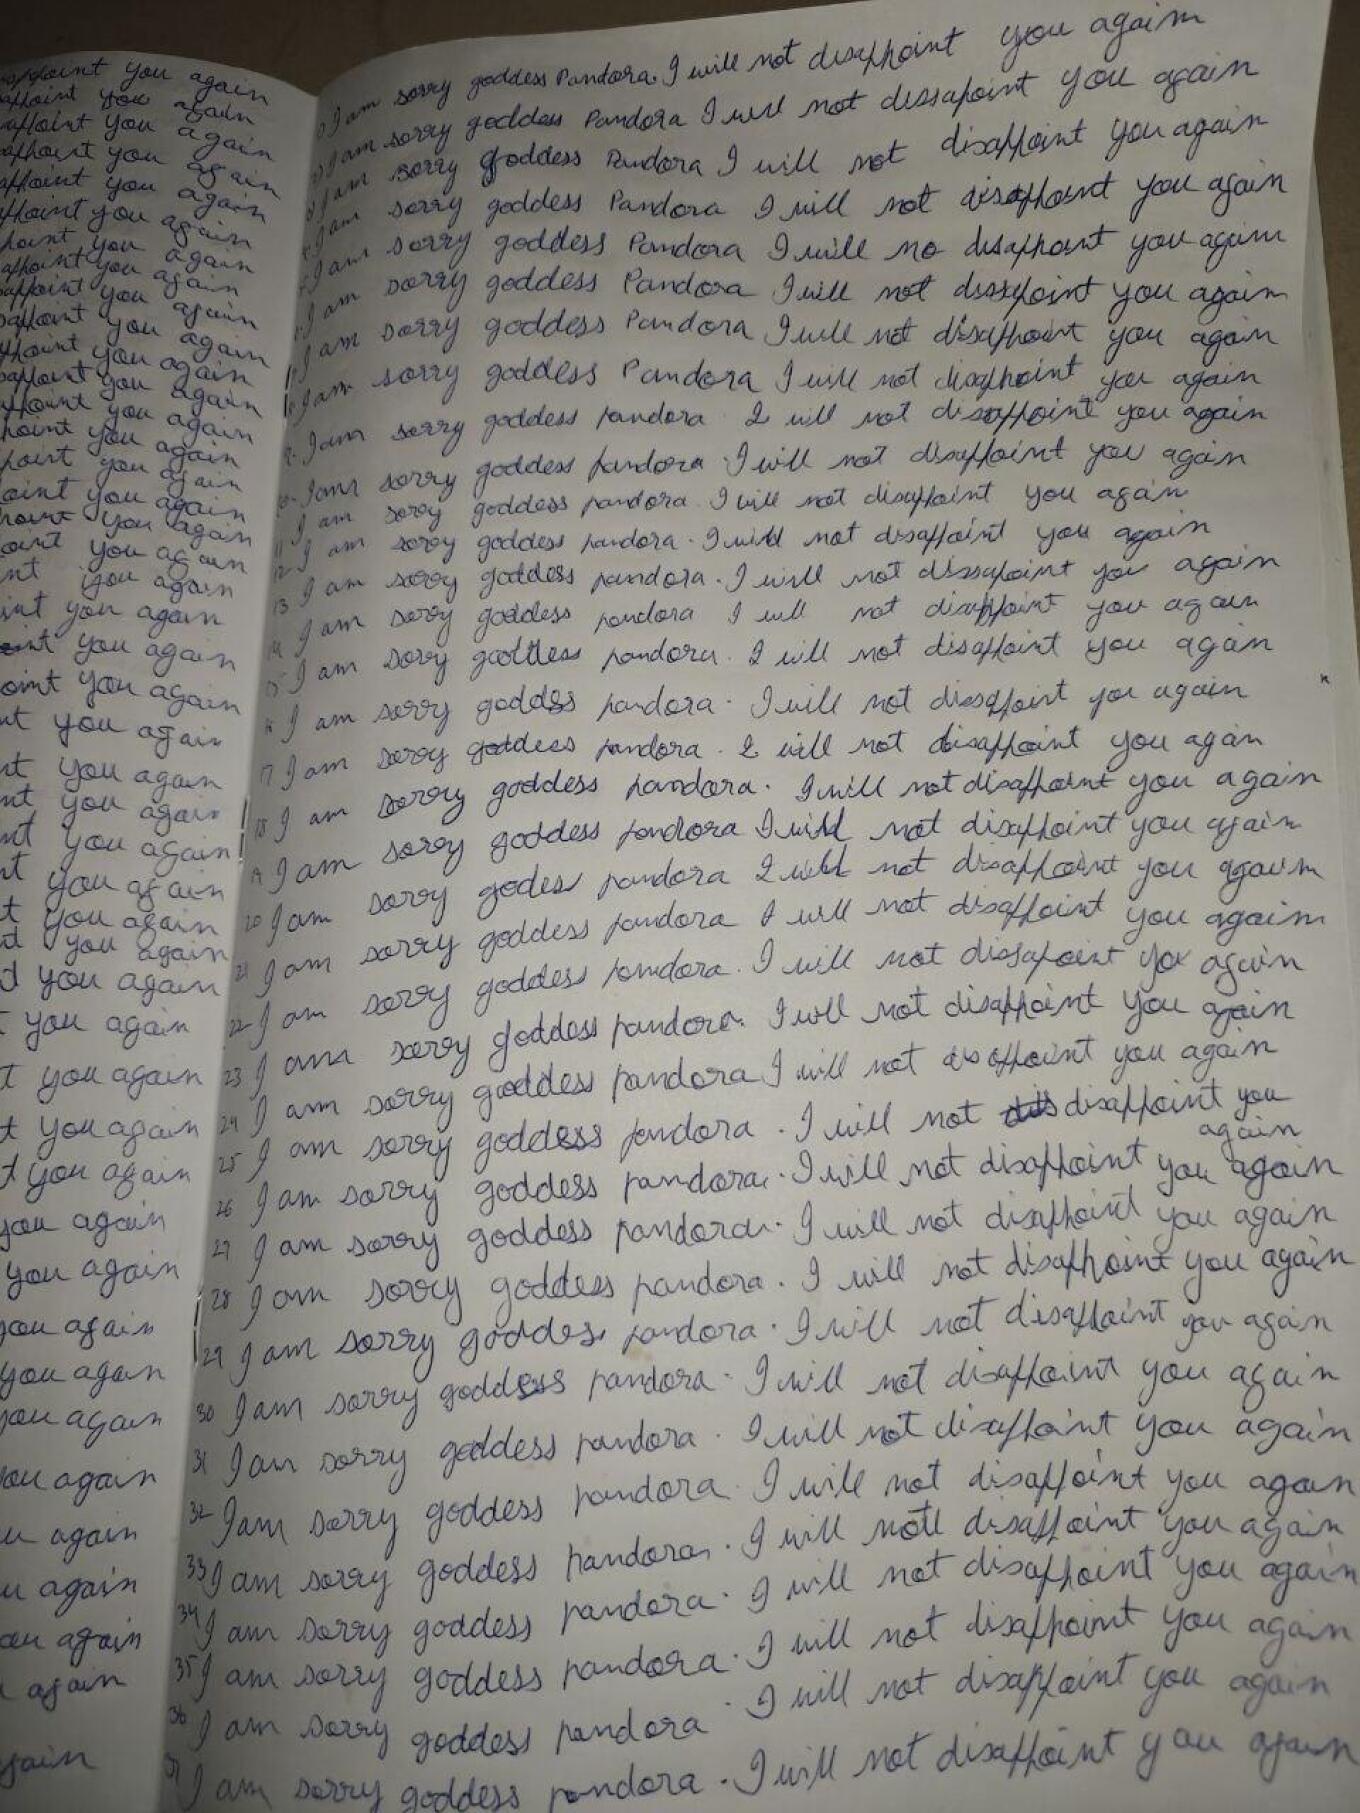 sappoint you again
appoint you again
appoint you again
appoint you again
appoint you again
ppoint you again
point you again
appoint you again
appoint you again
sappoint you again
ppoint you again
sappoint you again
ppoint you again
point you again
point you again
oint you again
point you again
oint you again
nt you again
int you again
oint you again
oint you again
nt you again
nt you again
nt you again
nt you again
nt you again
t you again
nt you again
t you again
t you again
t you again
t you again
t you again
you again
you again
you again
you again
you again
you again
u again
u again
ou again
again
again
1) I am sorry goddess Pandora. I will not disappoint you again
2) I am sorry goddess Pandora I will not dessapoint you again
3) I am sorry goddess Pandora I will not disappoint you again
4. I am sorry goddess Pandora I will not disappoint you again
5. I am sorry goddess Pandora I will no disappoint you again
6. I am sorry goddess Pandora I will not dissapoint you again
7. I am sorry goddess Pandora I will not disappoint you again
8. I am sorry goddess Pandora I will not disappoint you again
9. I am sorry goddess pandora. I will not disappoint you again
10. I am sorry goddess pandora. I will not disappoint you again
11 I am sorry goddess pandora. I will not disappoint you again
12 I am sorry goddess pandora. I will not disappoint you again
13 I am sorry goddess pandora. I will not dissapoint you again
14 I am sorry goddess pandora I will not disappoint you again
15 I am sorry goddess pandora. I will not disappoint you again
16 I am sorry goddess pandora. I will not disappoint you again
17 I am sorry goddess pandora. I will not disappoint you again
18 I am sorry goddess pandora. I will not disappoint you again
19 I am sorry goddess pandora I will not disappoint you again
20 I am sorry godess pandora I will not disappoint you again
21 I am sorry goddess pandora I will not disappoint you again
22 I am sorry goddess pandora. I will not dissapoint you again
23 I am sorry goddess pandora. I will not disappoint you again
24 I am sorry goddess pandora I will not disappoint you again
25 I am sorry goddess pandora. I will not disappoint you
again
26 I am sorry goddess pandora. I will not disappoint you again
27 I am sorry goddess pandora. I will not disappoint you again
28 I am sorry goddess pandora. I will not disappoint you again
29 I am sorry goddess pandora. I will not disappoint you again
30 I am sorry goddess pandora. I will not disappoint you again
31 I am sorry goddess pandora. I will not disappoint you again
32 I am sorry goddess pandora. I will not disappoint you again
33 I am sorry goddess pandora. I will not disappoint you again
34 I am sorry goddess pandora. I will not disappoint you again
35 I am sorry goddess pandora. I will not disappoint you again
36 I am sorry goddess pandora. I will not disappoint you again
37 I am sorry goddess pandora. I will not disappoint you again